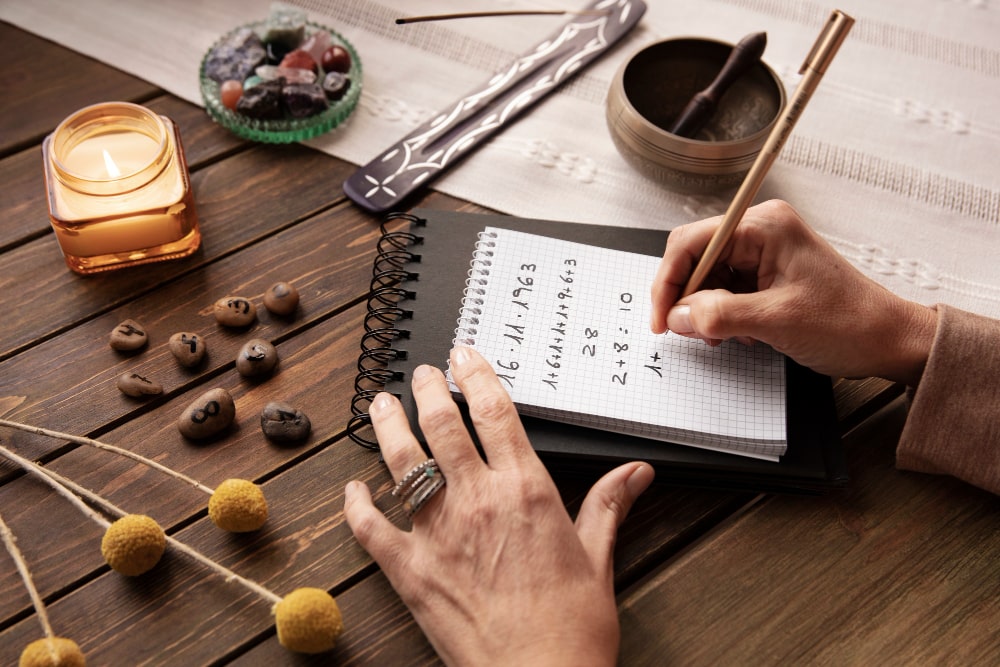 16·11·1963
1+6+1+1+1+9+6+3
28
2+8 : 10
1+
8